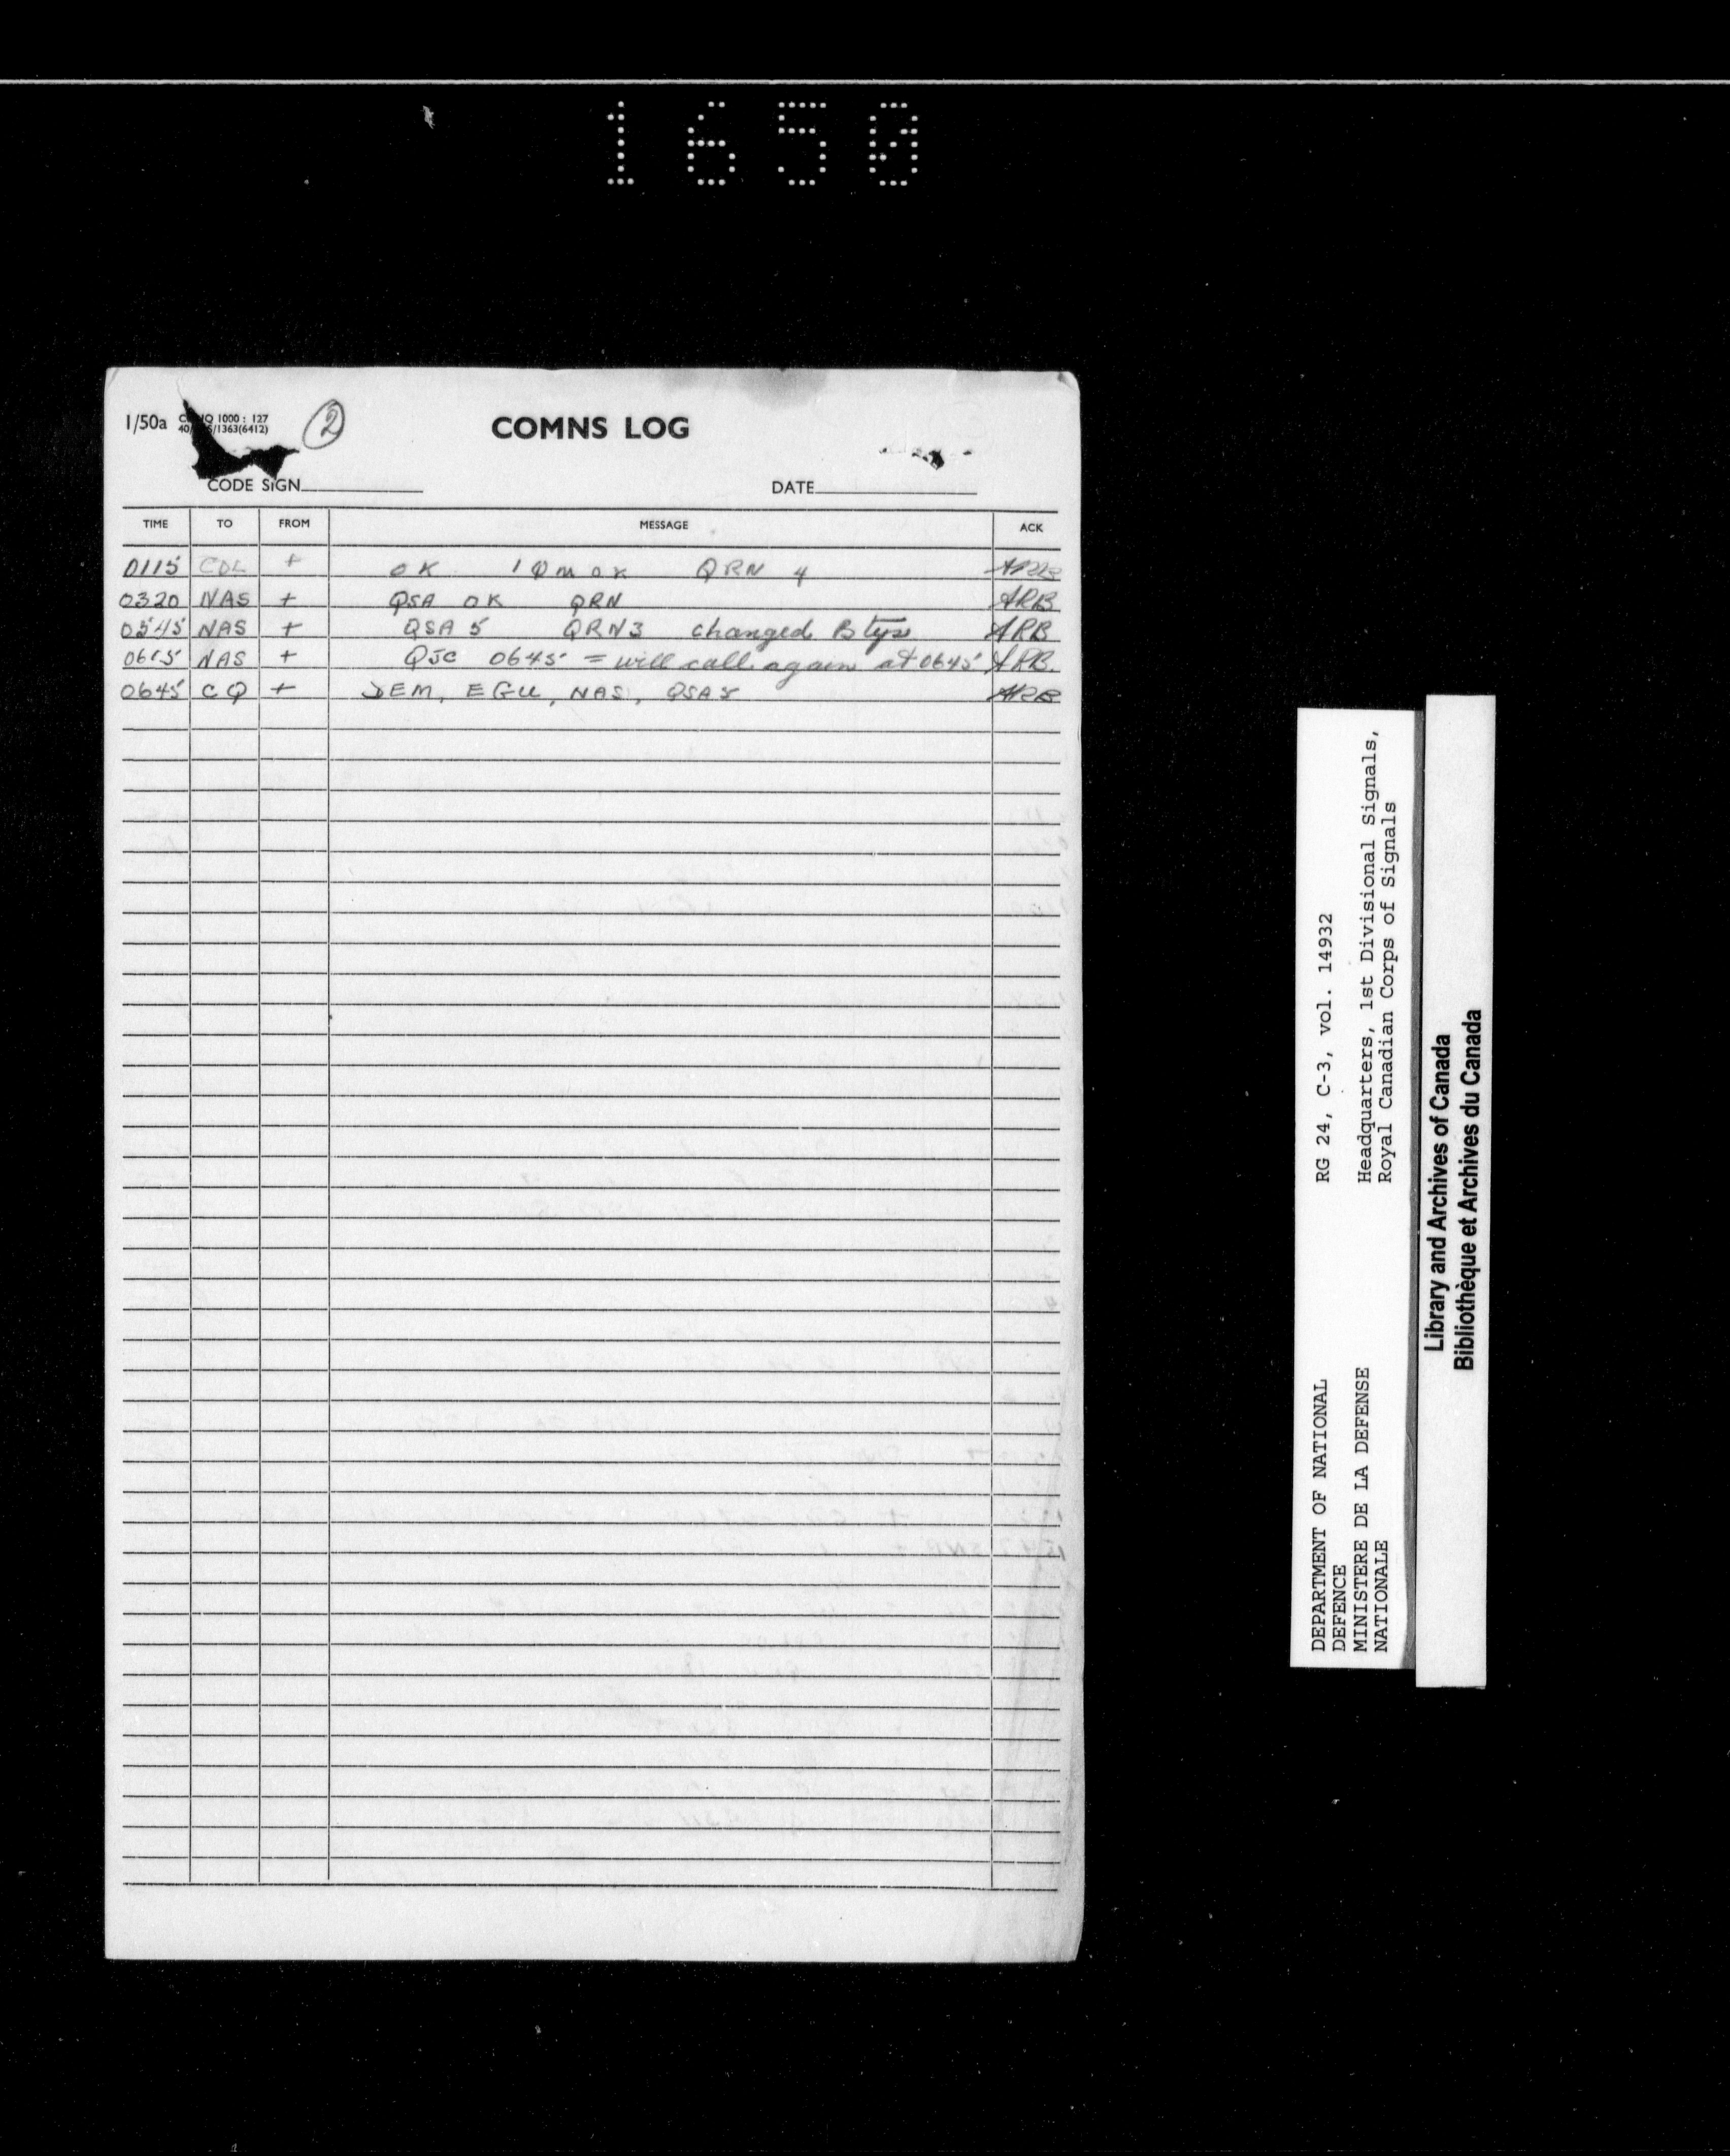 1650
1/50a
1000 : 127
/1363(6412)
2
COMNS LOG
CODE SIGN
DATE
TIME TO FROM MESSAGE ACK
0115 CDL + OK QRN 4
0320 NAS + QSA OK QRN ARB
0545 NAS + QSA 5 QRN3 changed B tys ARB
0615 NAS + QJC 0645 = will call again at 0645 ARB.
0645 CQ + DEM, EGU, NAS, QSA5 ARB
RG 24, C-3, vol. 14932
Headquarters, 1st Divisional Signals,
Royal Canadian Corps of Signals
DEPARTMENT OF NATIONAL
DEFENCE
MINISTERE DE LA DEFENSE
NATIONALE
Library and Archives of Canada
Bibliothèque et Archives du Canada